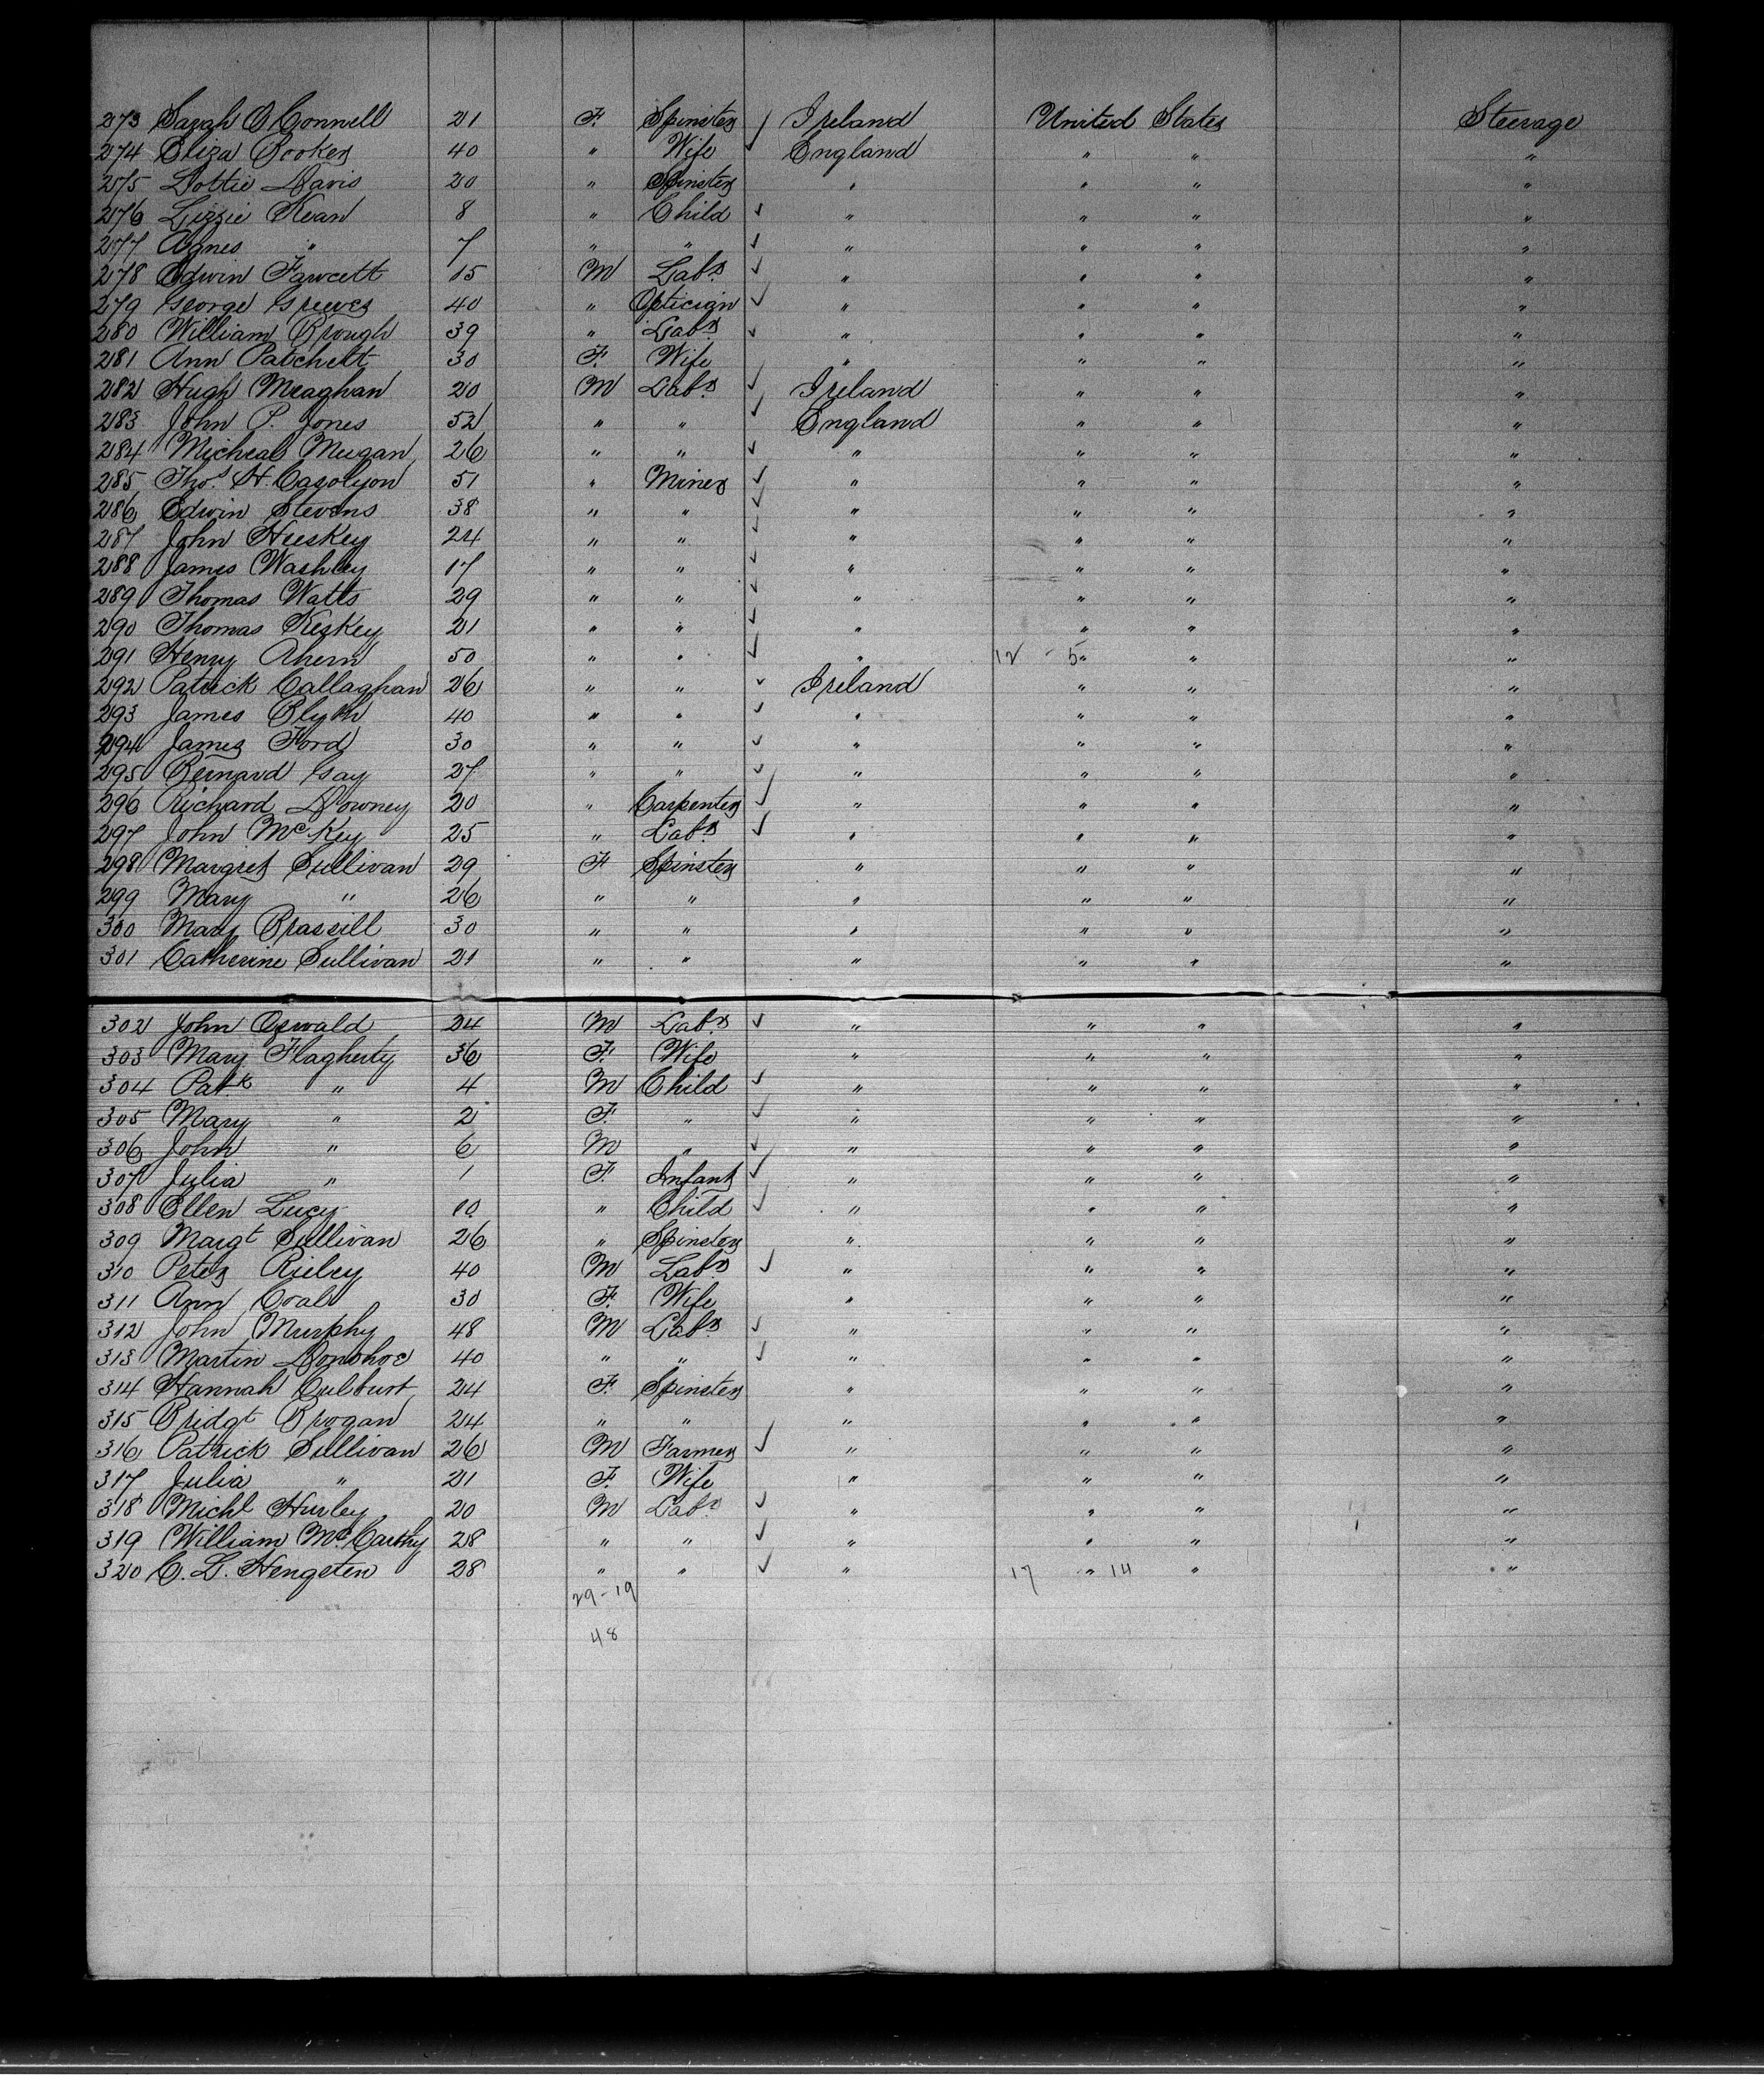 273 Sarah O Connell 21 F. Spinster Ireland United States Steerage
274 Eliza Booker 40 " Wife England " " "
275 Dottie Davis 20 " Spinster " " " "
276 Lizzie Kean 8 " Child " " " "
277 Agnes " 7 " " " " " "
278 Edwin Fawcett 15 M Labr " " " "
279 George Greeves 40 " Optician " " " "
280 William Brough 39 " Labr " " " "
281 Ann Patchett 30 F. Wife " " " "
282 Hugh Meaghan 20 M Labr Ireland " " "
283 John P. Jones 52 " " England " " "
284 Micheal Mugan 26 " " " " " "
285 Thos. H. Casolyon 51 " Miner " " " "
286 Edwin Stevens 38 " " " " " "
287 John Huskey 24 " " " " " "
288 James Washley 17 " " " " " "
289 Thomas Watts 29 " " " " " "
290 Thomas Keskey 21 " " " " " "
291 Henry Ahern 50 " " " 12 - 5 " " "
292 Patrick Callaghan 26 " " Ireland " " "
293 James Blyth 40 " " " " " "
294 James Ford 30 " " " " " "
295 Bernard Gay 27 " " " " " "
296 Richard Downey 20 " Carpenter " " " "
297 John McKey 25 " Labr " " " "
298 Margret Sullivan 29 F Spinster " " " "
299 Mary " 26 " " " " " "
300 Mary Brassill 30 " " " " " "
301 Catherine Sullivan 21 " " " " " "
302 John Oswald 24 M Labr " " " "
303 Mary Flagherty 36 F. Wife " " " "
304 Patk " 4 M Child " " " "
305 Mary " 2 F. " " " " "
306 John " 6 M " " " " "
307 Julia " 1 F. Infant " " " "
308 Ellen Lucy 10 " Child " " " "
309 Margt Sullivan 26 " Spinster " " " "
310 Peter Rieley 40 M Labr " " " "
311 Ann Coal 30 F. Wife " " " "
312 John Murphy 48 M Labr " " " "
313 Martin Donohoe 40 " " " " " "
314 Hannah Culburt 24 F. Spinster " " " "
315 Bridgt Brogan 24 " " " " " "
316 Patrick Sullivan 26 M Farmer " " " "
317 Julia " 21 F. Wife " " " "
318 Michl Hurley 20 M Labr " " " "
319 William McCarthy 28 " " " " " "
320 C. L. Hengeten 28 " " " 17 " 14 " "
29-19
48